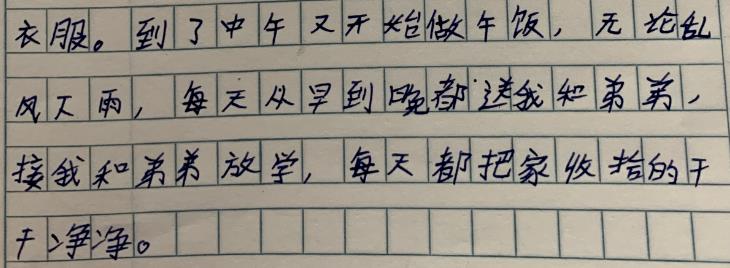 衣服。到了中午又开始做午饭，无论乱
风下雨，每天从早到晚都送我和弟弟，
接我和弟弟放学，每天都把家收拾的干
干净净。